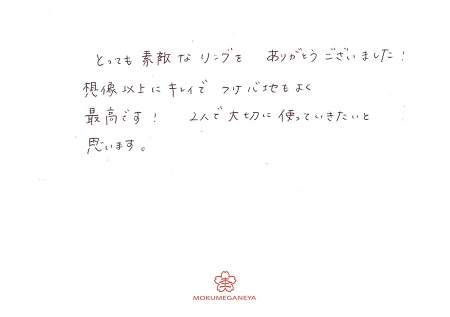 とっても 素敵な リングを ありがとうございました!
想像以上に キレイで つけ心地もよく
最高です! 2人で 大切に 使っていきたいと
思います。
MOKUMEGANEYA